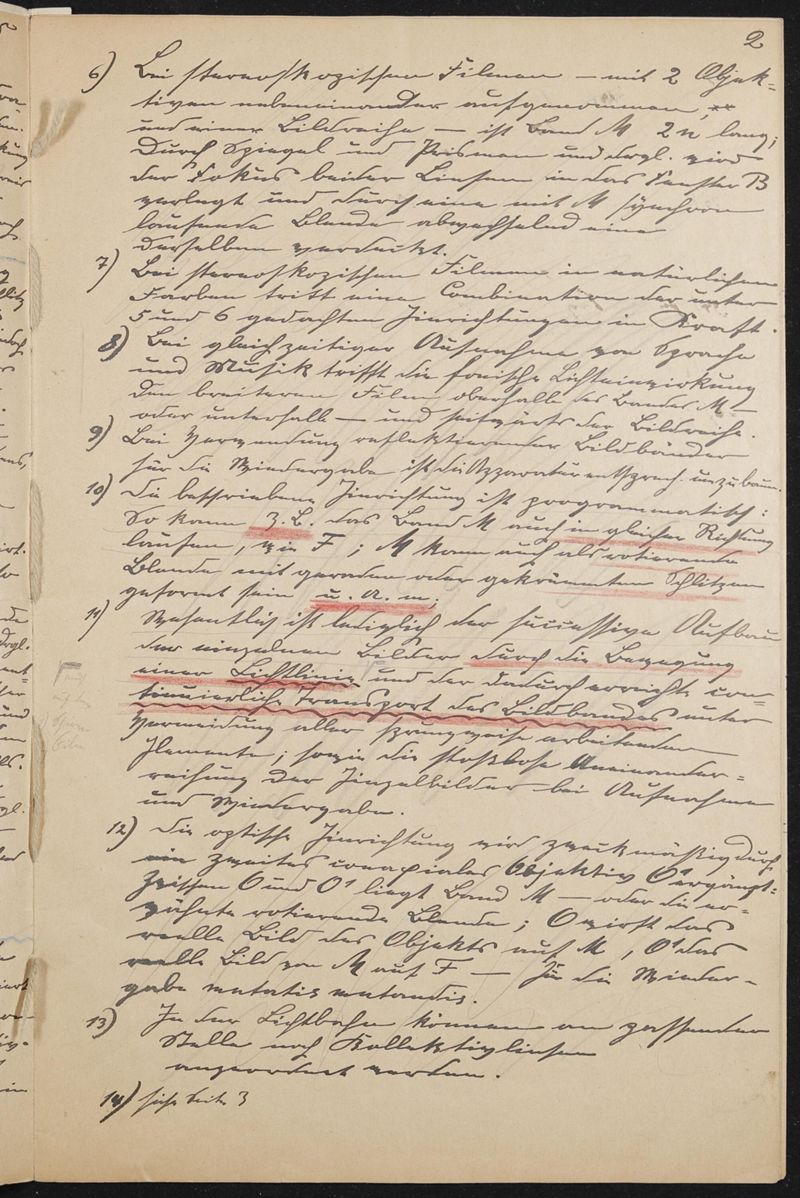 2
6) Bei stereoskopischen Filmen — mit 2 Objek-
tiven nebeneinander aufgenommen,
und einer Bildreihe — ist Band M 2n lang;
Durch Spiegel und Prismen und drgl. wird
der Fokus beider Linsen in das Fenster B
verlegt und durch eine mit M synchron
laufende Blende abwechselnd eine
derselben verdeckt.
7) Bei stereoskopischen Filmen in natürlichen
Farben tritt eine Combination der unter
5 und 6 gedachten Einrichtungen in Kraft.
8) Bei gleichzeitiger Aufnahme von Sprache
und Musik trifft die fonische Lichteinwirkung
den breiteren Film oberhalb des Bandes M —
oder unterhalb — und seitwärts der Bildreihe.
9) Bei Verwendung reflektierender Bildbänder
für die Wiedergabe ist die Apparatur entsprech. umzubauen.
10) Die beschriebene Einrichtung ist programmatisch:
So kann z.B. das Band M auch in gleicher Richtung
laufen, wie F; M kann auch als rotierende
Blende mit geraden oder gekrümmten Schlitzen
geformt sein u. A. m.
11) Wesentlich ist lediglich der successive Aufbau
der einzelnen Bilder durch die Bewegung
einer Lichtlinie und der dadurch erreichte con-
tinuierliche Transport des Bildbandes unter
Vermeidung aller sprungweise arbeitenden
Elemente; sowie die stoßlose Aneinander-
reihung der Einzelbilder bei Aufnahme
und Wiedergabe.
12) Die optische Einrichtung wird zweckmäßig durch
ein zweites conaxiales Objektiv O' ergänzt:
Zwischen O und O' liegt Band M — oder die er-
wähnte rotierende Blende; O wirft das
reelle Bild des Objekts auf M, O' das
reelle Bild von M auf F — Für die Wieder-
gabe mutatis mutandis.
13) In der Lichtbahn können an passender
Stelle noch Kollektivlinsen
angeordnet werden.
14) siehe Seite 3